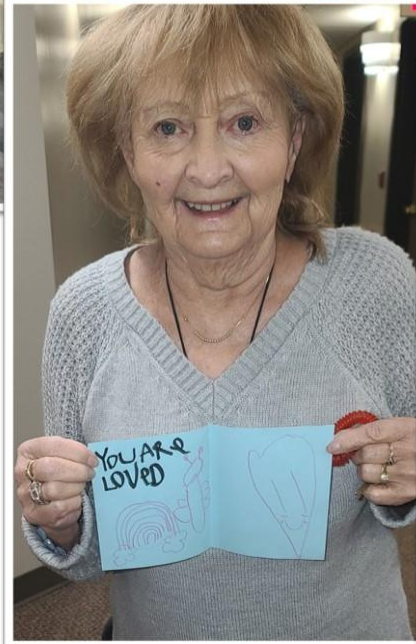 YOU ARe
LOVED